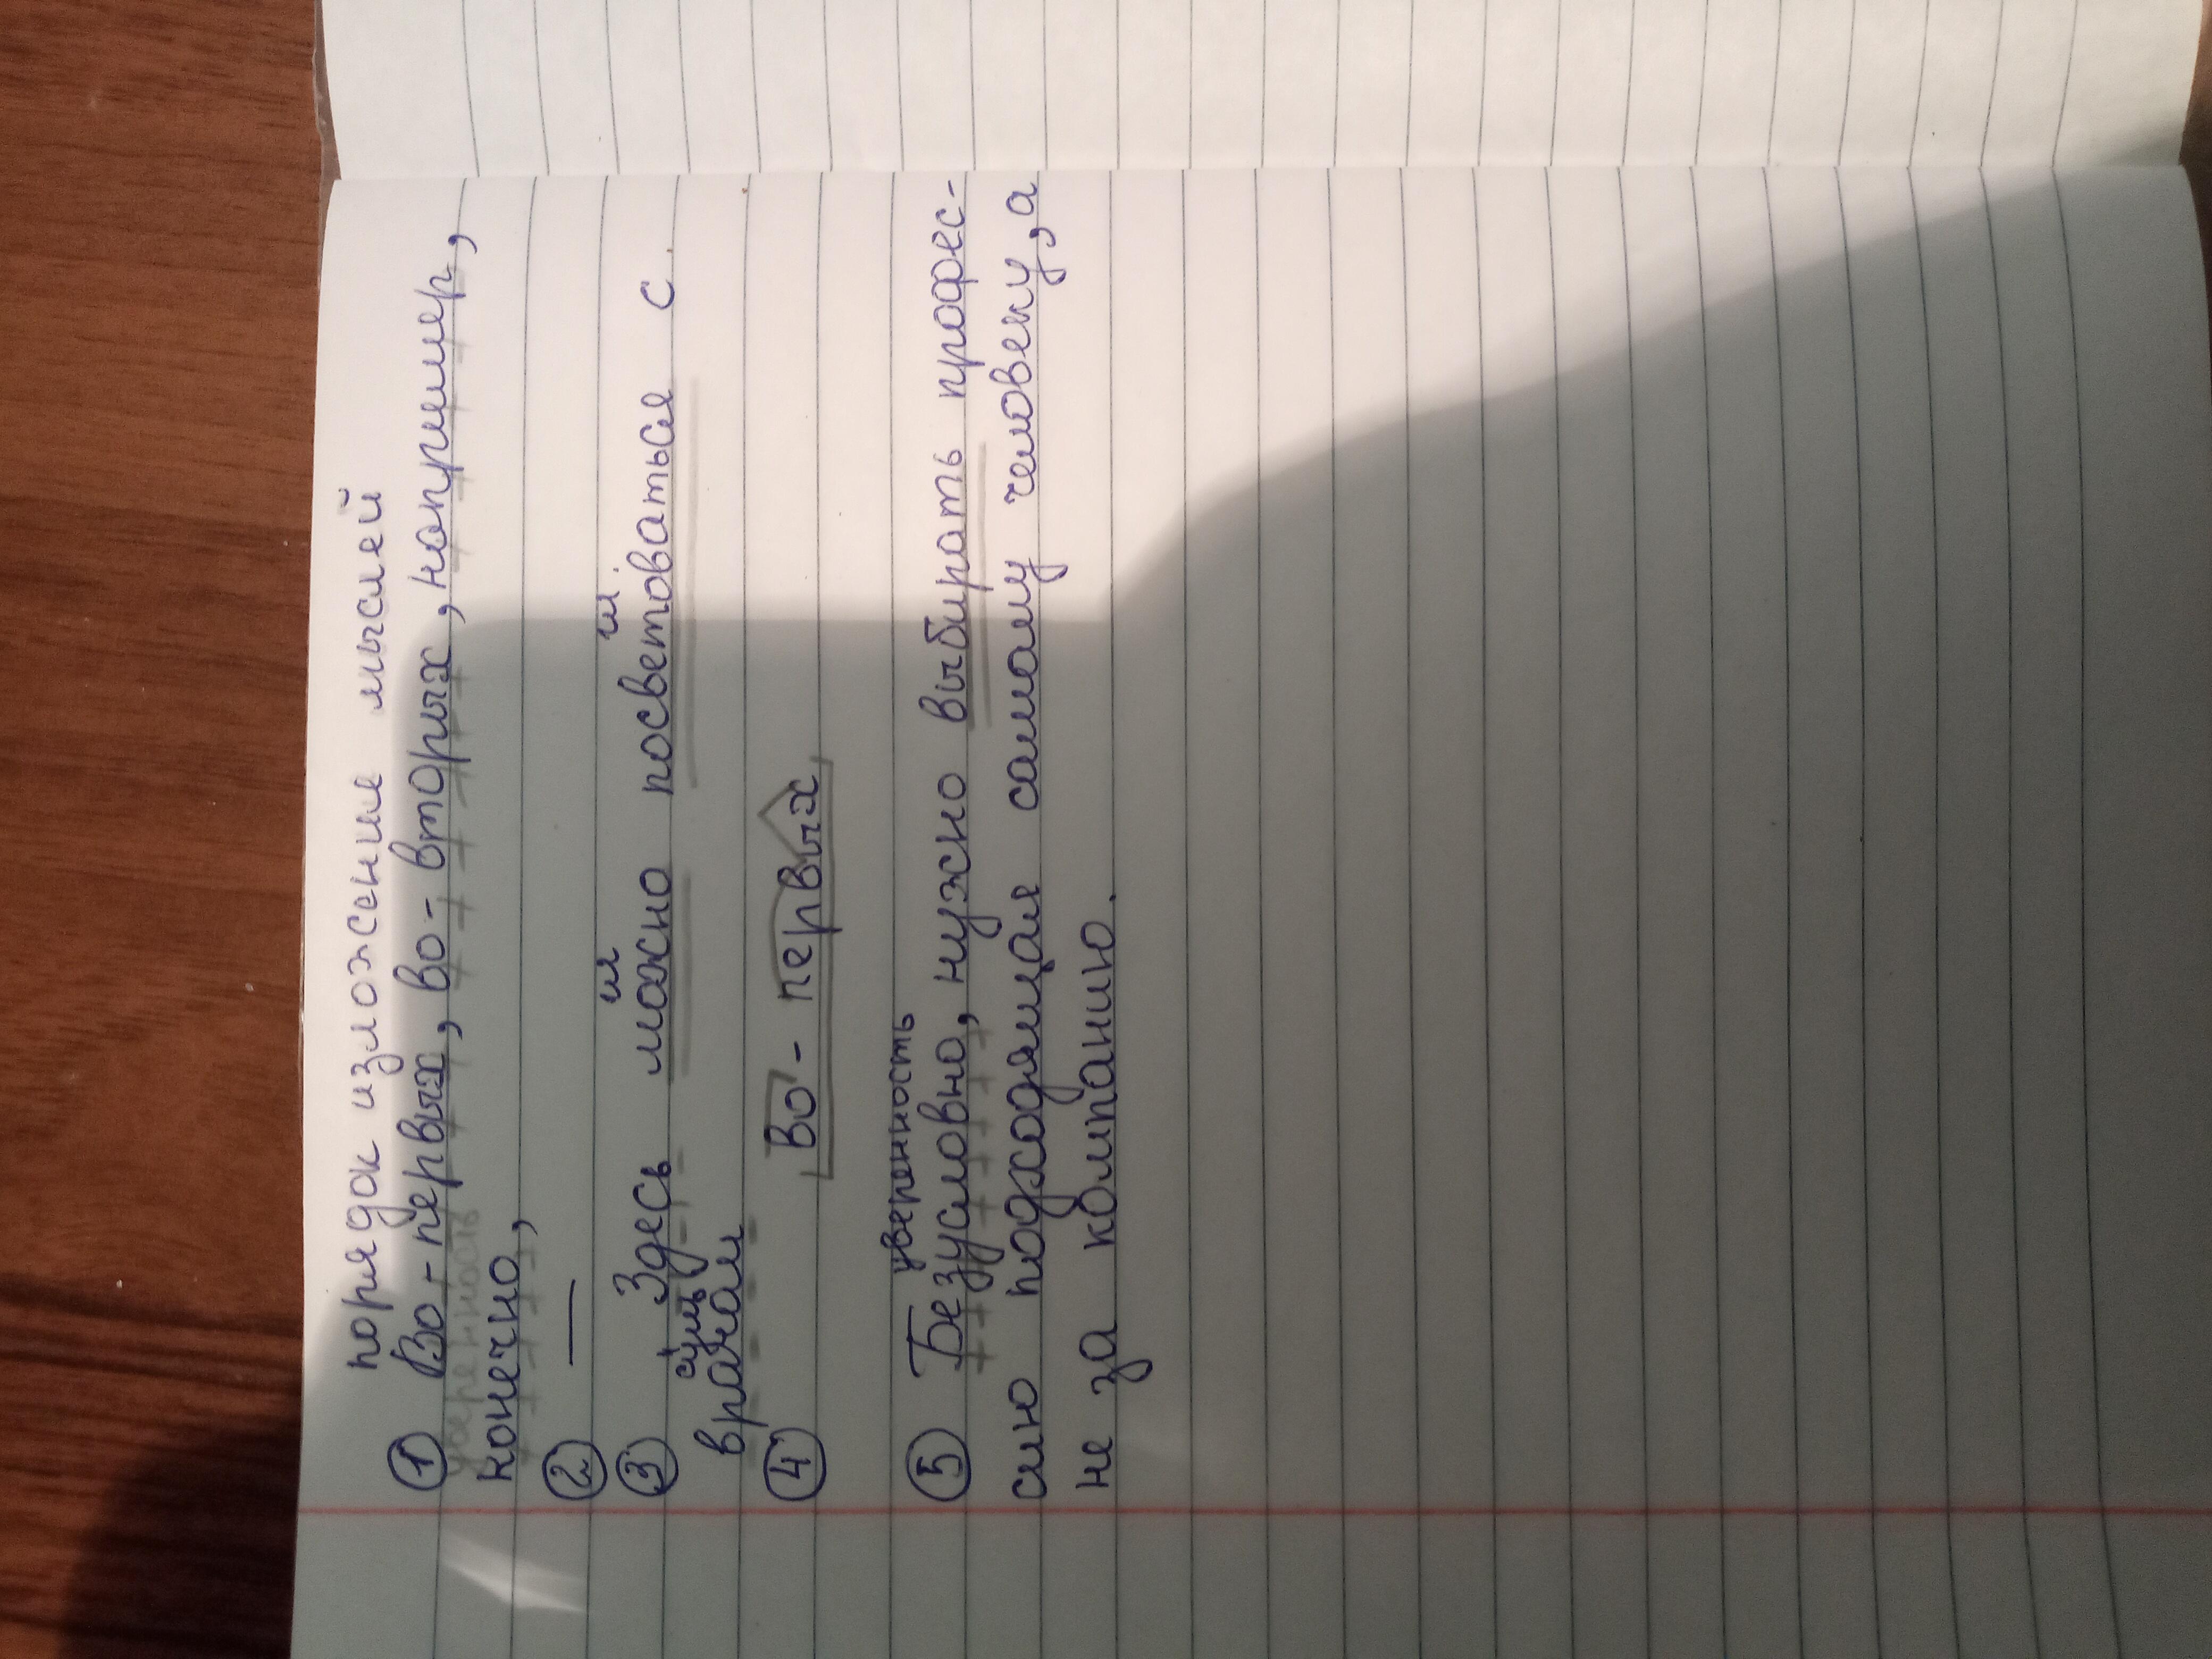 порядок изложения мыслей
① Во-первых, во-вторых, например,
уверенность
конечно,
② —
и и
③ Здесь можно посветоваться с
сущ
врачом
④ Во-первых
уверенность
⑤ Безусловно, нужно выбирать профес-
сию подходящая самому человеку, а
не за компанию.